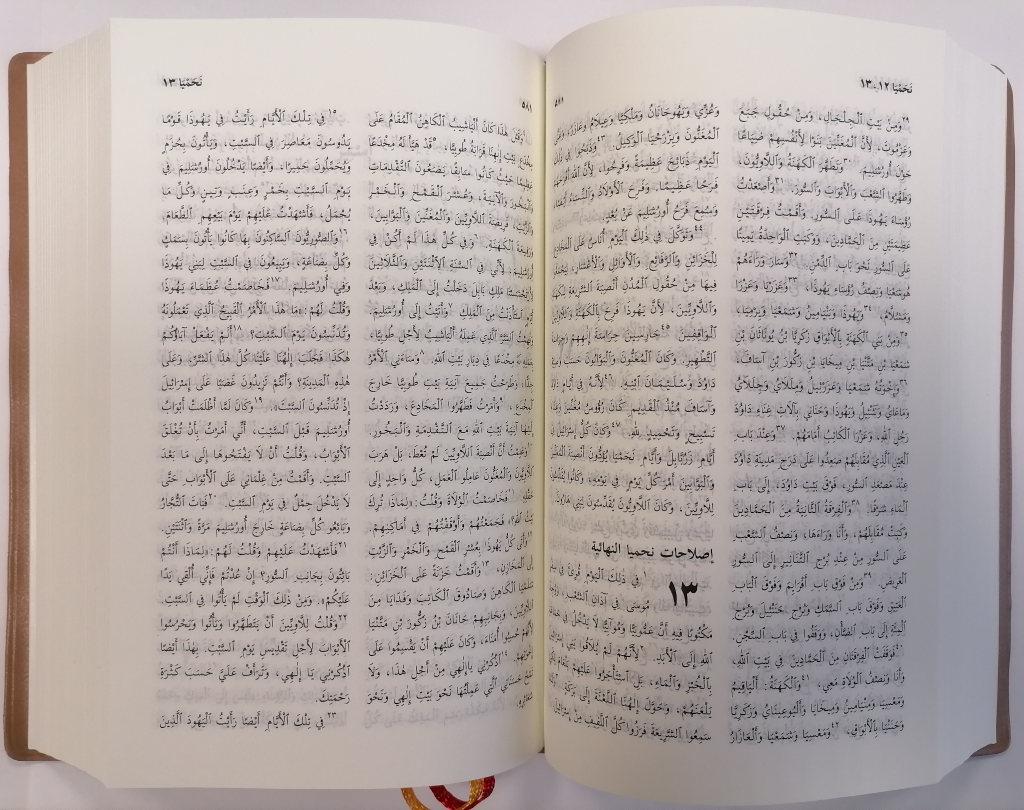 نَحَمْيَا ١٢، ١٣
٢٩وَمِنْ بَيْتِ ٱلْجِلْجَالِ، وَمِنْ حُقُولِ جَبْعَ
وَعَزْمُوتَ، لِأَنَّ ٱلْمُغَنِّينَ بَنَوْا لِأَنْفُسِهِمْ ضِيَاعًا
حَوْلَ أُورُشَلِيمَ. ٣٠وَتَطَهَّرَ ٱلْكَهَنَةُ وَٱللَّاوِيُّونَ،
وَطَهَّرُوا ٱلشَّعْبَ وَٱلْأَبْوَابَ وَٱلسُّورَ. ٣١وَأَصْعَدْتُ
رُؤَسَاءَ يَهُوذَا عَلَى ٱلسُّورِ، وَأَقَمْتُ فِرْقَتَيْنِ
عَظِيمَتَيْنِ مِنَ ٱلْحَمَّادِينَ، وَوَكَبَتِ ٱلْوَاحِدَةُ يَمِينًا
عَلَى ٱلسُّورِ نَحْوَ بَابِ ٱلدِّمْنِ. ٣٢وَسَارَ وَرَاءَهُمْ
هُوشَعْيَا وَنِصْفُ رُؤَسَاءِ يَهُوذَا، ٣٣وَعَزَرْيَا وَعَزْرَا
وَمَشُلَّامُ، ٣٤وَيَهُوذَا وَبَنْيَامِينُ وَشَمْعِيَا وَيَرْمِيَا،
٣٥وَمِنْ بَنِي ٱلْكَهَنَةِ بِٱلْأَبْوَاقِ زَكَرِيَّا بْنُ يُونَاثَانَ بْنِ
شَمْعِيَا بْنِ مَتَّنْيَا بْنِ مِيخَايَا بْنِ زَكُّورَ بْنِ آسَافَ،
٣٦وَإِخْوَتُهُ شَمْعِيَا وَعَزَرْئِيلُ وَمِلَلَايُ وَجِلَلَايُ
وَمَاعَايُ وَنَثَنْئِيلُ وَيَهُوذَا وَحَنَانِي بِآلَاتِ غِنَاءِ دَاوُدَ
رَجُلِ ٱللهِ، وَعَزْرَا ٱلْكَاتِبُ أَمَامَهُمْ. ٣٧وَعِنْدَ بَابِ
ٱلْعَيْنِ ٱلَّذِي مُقَابِلَهُمْ صَعِدُوا عَلَى دَرَجِ مَدِينَةِ دَاوُدَ
عِنْدَ مَصْعَدِ ٱلسُّورِ، فَوْقَ بَيْتِ دَاوُدَ، إِلَى بَابِ
ٱلْمَاءِ شَرْقًا. ٣٨وَٱلْفِرْقَةُ ٱلثَّانِيَةُ مِنَ ٱلْحَمَّادِينَ
وَكَبَتْ مُقَابِلَهُمْ، وَأَنَا وَرَاءَهَا، وَنِصْفُ ٱلشَّعْبِ
عَلَى ٱلسُّورِ مِنْ عِنْدِ بُرْجِ ٱلتَّنَانِيرِ إِلَى ٱلسُّورِ
ٱلْعَرِيضِ. ٣٩وَمِنْ فَوْقِ بَابِ أَفْرَايِمَ وَفَوْقَ ٱلْبَابِ
ٱلْعَتِيقِ وَفَوْقَ بَابِ ٱلسَّمَكِ وَبُرْجِ حَنَنْئِيلَ وَبُرْجِ
ٱلْمِئَةِ إِلَى بَابِ ٱلضَّأْنِ، وَوَقَفُوا فِي بَابِ ٱلسِّجْنِ.
٤٠فَوَقَفَتِ ٱلْفِرْقَتَانِ مِنَ ٱلْحَمَّادِينَ فِي بَيْتِ ٱللهِ،
وَأَنَا وَنِصْفُ ٱلْوُلَاةِ مَعِي، ٤١وَٱلْكَهَنَةُ: أَلِيَاقِيمُ
وَمَعَسِيَا وَمِنْيَامِينُ وَمِيخَايَا وَأَلْيُوعِينَايُ وَزَكَرِيَّا
وَحَنَنْيَا بِٱلْأَبْوَاقِ، ٤٢وَمَعَسِيَا وَشَمْعِيَا وَأَلِعَازَارُ
وَعُزِّي وَيَهُوحَانَانُ وَمَلْكِيَّا وَعِيلَامُ وَعَازَرُ،
ٱلْمُغَنُّونَ وَيِزْرَحْيَا ٱلْوَكِيلُ. ٤٣وَذَبَحُوا فِي ذَلِكَ
ٱلْيَوْمِ ذَبَائِحَ عَظِيمَةً وَفَرِحُوا، لِأَنَّ ٱللهَ أَفْرَحَهُمْ
فَرَحًا عَظِيمًا. وَفَرِحَ ٱلْأَوْلَادُ وَٱلنِّسَاءُ أَيْضًا،
وَسُمِعَ فَرَحُ أُورُشَلِيمَ عَنْ بُعْدٍ.
٤٤وَتَوَكَّلَ فِي ذَلِكَ ٱلْيَوْمِ أُنَاسٌ عَلَى ٱلْمَخَادِعِ
لِلْخَزَائِنِ وَٱلرَّفَائِعِ وَٱلْأَوَائِلِ وَٱلْأَعْشَارِ، لِيَجْمَعُوا
فِيهَا مِنْ حُقُولِ ٱلْمُدُنِ أَنْصِبَةَ ٱلشَّرِيعَةِ لِلْكَهَنَةِ
وَٱللَّاوِيِّينَ، لِأَنَّ يَهُوذَا فَرِحَ بِٱلْكَهَنَةِ وَٱللَّاوِيِّينَ
ٱلْوَاقِفِينَ ٤٥حَارِسِينَ حِرَاسَةَ إِلَهِهِمْ وَحِرَاسَةَ
ٱلتَّطْهِيرِ. وَكَانَ ٱلْمُغَنُّونَ وَٱلْبَوَّابُونَ حَسَبَ وَصِيَّةِ
دَاوُدَ وَسُلَيْمَانَ ٱبْنِهِ. ٤٦لِأَنَّهُ فِي أَيَّامِ دَاوُدَ
وَآسَافَ مُنْذُ ٱلْقَدِيمِ كَانَ رُؤُوسُ مُغَنِّينَ وَغِنَاءُ
تَسْبِيحٍ وَتَحْمِيدٍ لِلهِ. ٤٧وَكَانَ كُلُّ إِسْرَائِيلَ فِي
أَيَّامِ زَرُبَّابِلَ وَأَيَّامِ نَحَمْيَا يُؤَدُّونَ أَنْصِبَةَ ٱلْمُغَنِّينَ
وَٱلْبَوَّابِينَ أَمْرَ كُلِّ يَوْمٍ فِي يَوْمِهِ، وَكَانُوا يُقَدِّسُونَ
لِلَّاوِيِّينَ، وَكَانَ ٱللَّاوِيُّونَ يُقَدِّسُونَ لِبَنِي هَارُونَ.
إصلاحات نحميا النهائية
١٣ فِي ذَلِكَ ٱلْيَوْمِ قُرِئَ فِي سِفْرِ
مُوسَى فِي آذَانِ ٱلشَّعْبِ، وَوُجِدَ
مَكْتُوبًا فِيهِ أَنَّ عَمُّونِيًّا وَمُوآبِيًّا لَا يَدْخُلُ فِي جَمَاعَةِ
ٱللهِ إِلَى ٱلْأَبَدِ. ٢لِأَنَّهُمْ لَمْ يُلَاقُوا بَنِي إِسْرَائِيلَ
بِٱلْخُبْزِ وَٱلْمَاءِ، بَلِ ٱسْتَأْجَرُوا عَلَيْهِمْ بَلْعَامَ لِكَيْ
يَلْعَنَهُمْ، وَحَوَّلَ إِلَهُنَا ٱللَّعْنَةَ إِلَى بَرَكَةٍ. ٣وَلَمَّا
سَمِعُوا ٱلشَّرِيعَةَ فَرَزُوا كُلَّ ٱللَّفِيفِ مِنْ إِسْرَائِيلَ.
نَحَمْيَا ١٣
٥٨١
٤وَقَبْلَ هَذَا كَانَ أَلْيَاشِيبُ ٱلْكَاهِنُ ٱلْمُقَامُ عَلَى
مِخْدَعِ بَيْتِ إِلَهِنَا قَرَابَةُ طُوبِيَّا، ٥قَدْ هَيَّأَ لَهُ مِخْدَعًا
عَظِيمًا حَيْثُ كَانُوا سَابِقًا يَضَعُونَ ٱلتَّقْدِمَاتِ
وَٱلْبَخُورَ وَٱلْآنِيَةَ، وَعُشْرَ ٱلْقَمْحِ وَٱلْخَمْرِ
وَٱلزَّيْتِ، فَرِيضَةَ ٱللَّاوِيِّينَ وَٱلْمُغَنِّينَ وَٱلْبَوَّابِينَ،
وَرَفِيعَةَ ٱلْكَهَنَةِ. ٦وَفِي كُلِّ هَذَا لَمْ أَكُنْ فِي
أُورُشَلِيمَ، لِأَنِّي فِي ٱلسَّنَةِ ٱلِٱثْنَتَيْنِ وَٱلثَّلَاثِينَ
لِأَرْتَحْشَسْتَا مَلِكِ بَابِلَ دَخَلْتُ إِلَى ٱلْمَلِكِ، وَبَعْدَ
أَيَّامٍ ٱسْتَأْذَنْتُ مِنَ ٱلْمَلِكِ ٧وَأَتَيْتُ إِلَى أُورُشَلِيمَ.
وَفَهِمْتُ ٱلشَّرَّ ٱلَّذِي عَمِلَهُ أَلْيَاشِيبُ لِأَجْلِ طُوبِيَّا،
بِعَمَلِهِ لَهُ مِخْدَعًا فِي دِيَارِ بَيْتِ ٱللهِ. ٨وَسَاءَنِيَ ٱلْأَمْرُ
جِدًّا، وَطَرَحْتُ جَمِيعَ آنِيَةِ بَيْتِ طُوبِيَّا خَارِجَ
ٱلْمِخْدَعِ، ٩وَأَمَرْتُ فَطَهَّرُوا ٱلْمَخَادِعَ، وَرَدَدْتُ
إِلَيْهَا آنِيَةَ بَيْتِ ٱللهِ مَعَ ٱلتَّقْدِمَةِ وَٱلْبَخُورِ.
١٠وَعَلِمْتُ أَنَّ أَنْصِبَةَ ٱللَّاوِيِّينَ لَمْ تُعْطَ، بَلْ هَرَبَ
ٱللَّاوِيُّونَ وَٱلْمُغَنُّونَ عَامِلُو ٱلْعَمَلِ، كُلُّ وَاحِدٍ إِلَى
حَقْلِهِ. ١١فَخَاصَمْتُ ٱلْوُلَاةَ وَقُلْتُ: «لِمَاذَا تُرِكَ
بَيْتُ ٱللهِ؟» فَجَمَعْتُهُمْ وَأَوْقَفْتُهُمْ فِي أَمَاكِنِهِمْ.
١٢وَأَتَى كُلُّ يَهُوذَا بِعُشْرِ ٱلْقَمْحِ وَٱلْخَمْرِ وَٱلزَّيْتِ
إِلَى ٱلْمَخَازِنِ، ١٣وَأَقَمْتُ خَزَنَةً عَلَى ٱلْخَزَائِنِ:
شَلَمْيَا ٱلْكَاهِنَ وَصَادُوقَ ٱلْكَاتِبَ وَفَدَايَا مِنَ
ٱللَّاوِيِّينَ، وَبِجَانِبِهِمْ حَانَانَ بْنَ زَكُّورَ بْنِ مَتَّنْيَا
لِأَنَّهُمْ حُسِبُوا أُمَنَاءَ، وَكَانَ عَلَيْهِمْ أَنْ يَقْسِمُوا عَلَى
إِخْوَتِهِمْ. ١٤ٱذْكُرْنِي يَاإِلَهِي مِنْ أَجْلِ هَذَا، وَلَا
تَمْحُ حَسَنَاتِي ٱلَّتِي عَمِلْتُهَا نَحْوَ بَيْتِ إِلَهِي وَنَحْوَ
شَعَائِرِهِ.
١٥فِي تِلْكَ ٱلْأَيَّامِ رَأَيْتُ فِي يَهُوذَا قَوْمًا
يَدُوسُونَ مَعَاصِرَ فِي ٱلسَّبْتِ، وَيَأْتُونَ بِحُزَمٍ
وَيُحَمِّلُونَ حَمِيرًا، وَأَيْضًا يَدْخُلُونَ أُورُشَلِيمَ فِي
يَوْمِ ٱلسَّبْتِ بِخَمْرٍ وَعِنَبٍ وَتِينٍ وَكُلِّ مَا
يُحْمَلُ، فَأَشْهَدْتُ عَلَيْهِمْ يَوْمَ بَيْعِهِمِ ٱلطَّعَامَ.
١٦وَٱلصُّورِيُّونَ ٱلسَّاكِنُونَ بِهَا كَانُوا يَأْتُونَ بِسَمَكٍ
وَكُلِّ بِضَاعَةٍ، وَيَبِيعُونَ فِي ٱلسَّبْتِ لِبَنِي يَهُوذَا
وَفِي أُورُشَلِيمَ. ١٧فَخَاصَمْتُ عُظَمَاءَ يَهُوذَا
وَقُلْتُ لَهُمْ: «مَا هَذَا ٱلْأَمْرُ ٱلْقَبِيحُ ٱلَّذِي تَعْمَلُونَهُ
وَتُدَنِّسُونَ يَوْمَ ٱلسَّبْتِ؟ ١٨أَلَمْ يَفْعَلْ آبَاؤُكُمْ
هَكَذَا فَجَلَبَ إِلَهُنَا عَلَيْنَا كُلَّ هَذَا ٱلشَّرِّ، وَعَلَى
هَذِهِ ٱلْمَدِينَةِ؟ وَأَنْتُمْ تَزِيدُونَ غَضَبًا عَلَى إِسْرَائِيلَ
إِذْ تُدَنِّسُونَ ٱلسَّبْتَ». ١٩وَكَانَ لَمَّا أَظْلَمَتْ أَبْوَابُ
أُورُشَلِيمَ قَبْلَ ٱلسَّبْتِ، أَنِّي أَمَرْتُ بِأَنْ تُغْلَقَ
ٱلْأَبْوَابُ، وَقُلْتُ أَنْ لَا يَفْتَحُوهَا إِلَى مَا بَعْدَ
ٱلسَّبْتِ. وَأَقَمْتُ مِنْ غِلْمَانِي عَلَى ٱلْأَبْوَابِ حَتَّى
لَا يَدْخُلَ حِمْلٌ فِي يَوْمِ ٱلسَّبْتِ. ٢٠فَبَاتَ ٱلتُّجَّارُ
وَبَائِعُو كُلِّ بِضَاعَةٍ خَارِجَ أُورُشَلِيمَ مَرَّةً وَٱثْنَتَيْنِ.
٢١فَأَشْهَدْتُ عَلَيْهِمْ وَقُلْتُ لَهُمْ: «لِمَاذَا أَنْتُمْ
بَائِتُونَ بِجَانِبِ ٱلسُّورِ؟ إِنْ عُدْتُمْ فَإِنِّي أُلْقِي يَدًا
عَلَيْكُمْ». وَمِنْ ذَلِكَ ٱلْوَقْتِ لَمْ يَأْتُوا فِي ٱلسَّبْتِ.
٢٢وَقُلْتُ لِلَّاوِيِّينَ أَنْ يَتَطَهَّرُوا وَيَأْتُوا وَيَحْرُسُوا
ٱلْأَبْوَابَ لِأَجْلِ تَقْدِيسِ يَوْمِ ٱلسَّبْتِ. بِهَذَا أَيْضًا
ٱذْكُرْنِي يَا إِلَهِي، وَتَرَأَّفْ عَلَيَّ حَسَبَ كَثْرَةِ
رَحْمَتِكَ.
٢٣فِي تِلْكَ ٱلْأَيَّامِ أَيْضًا رَأَيْتُ ٱلْيَهُودَ ٱلَّذِينَ